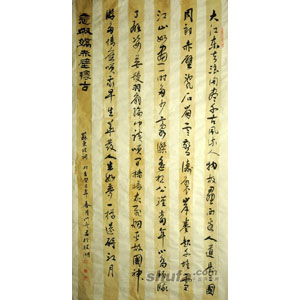 大江东去浪淘尽千古风流人物故垒西边人道是三国
周郎赤壁乱石崩云惊涛裂岸卷起千堆雪
江山如画一时多少豪杰遥想公瑾当年小乔初嫁
了雄姿英发羽扇纶巾谈笑间樯橹灰飞烟灭故国神
游多情应笑我早生华发人生如梦一樽还酹江月
念奴娇赤壁怀古
苏东坡词
shufa.com